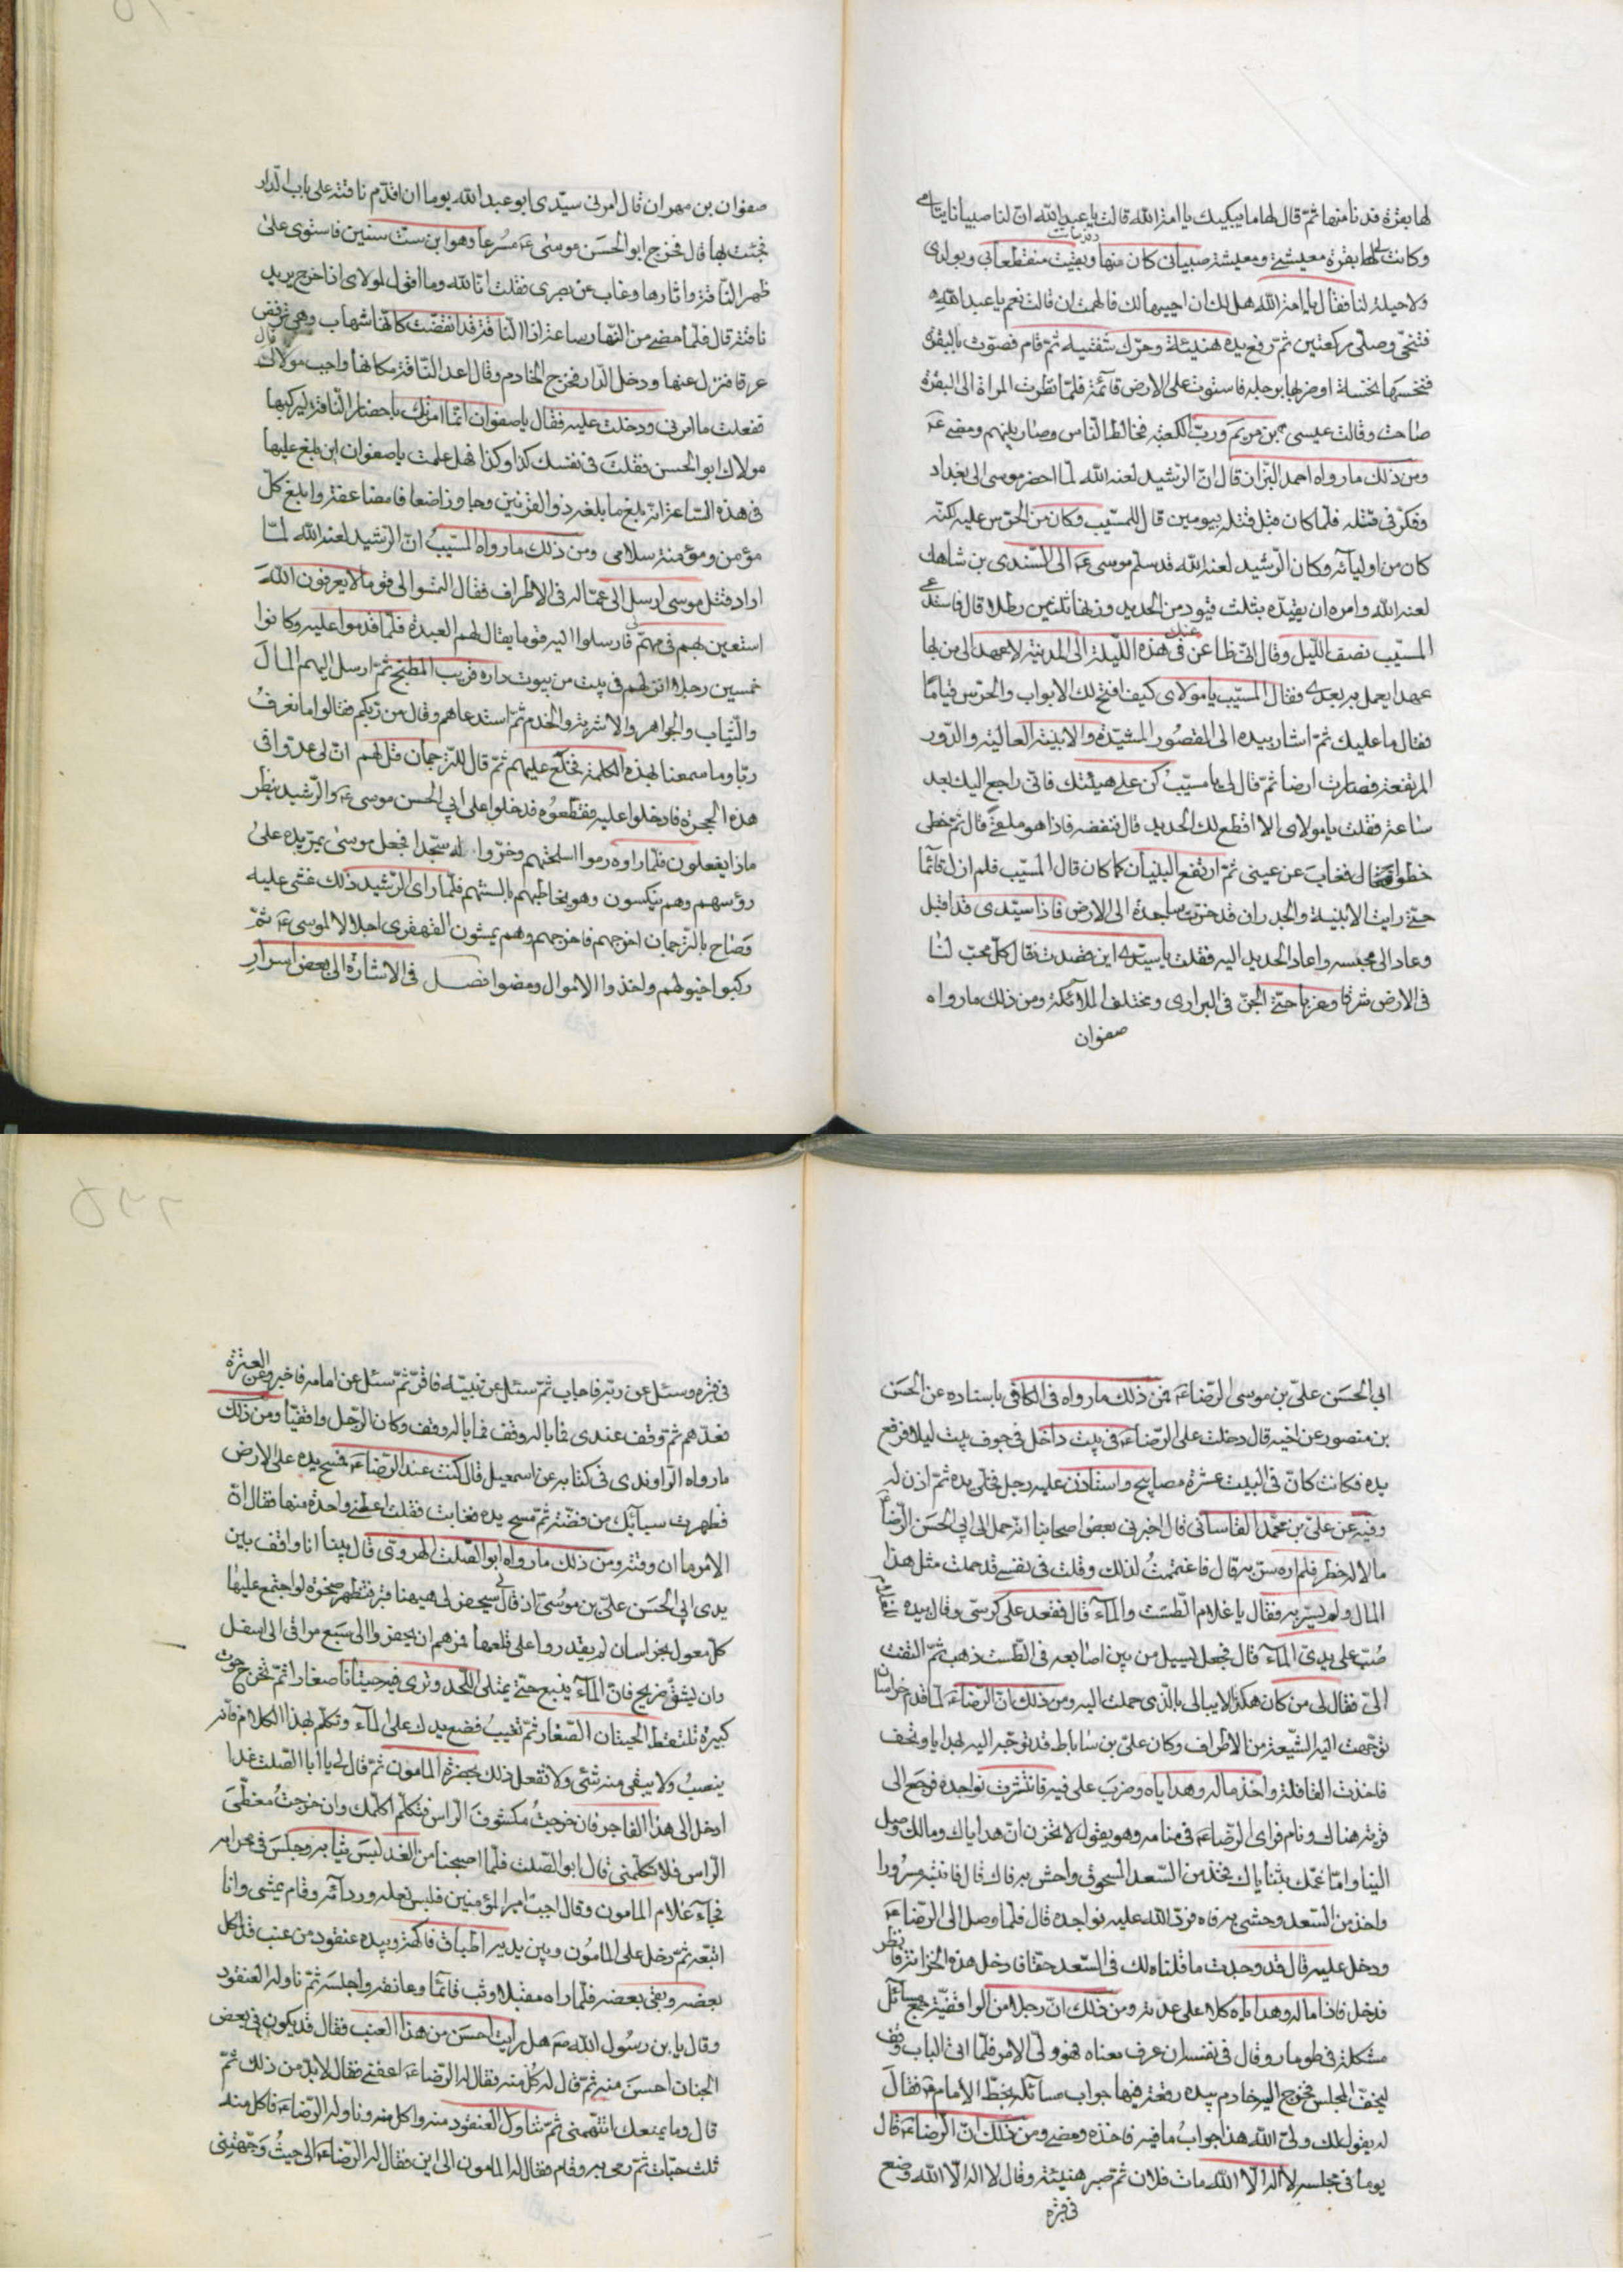 لها بقرة فدنا منها ثمّ قال لها ما يبكيك يا امة الله قالت يا عبد الله انّ لنا صبيانا يتامى
وكانت لى بقرة معيشتى ومعيشة صبيانى كان منها وقد ماتت وبقيت منقطعا بى وبولدى
ولا حيلة لنا فقال يا امة الله هل لك ان احييها لك فالهمت ان قالت نعم يا عبد الله
فتنحّى وصلّى ركعتين ثمّ رفع يده هنيئة وحرّك شفتيه ثمّ قام فصوّت بالبقرة
فنخسها نخسة او ضربها برجله فاستوت على الارض قائمة فلمّا نظرت المراة الى البقرة
صاحت وقالت عيسى بن مريم وربّ الكعبة فخالط النّاس وصار بينهم ومضى عم
ومن ذلك مارواه احمد البزاز قال انّ الرّشيد لعنه الله لمّا احضر موسى الى بغداد
وفكّر فى قتله فلمّا كان قبل قتله بيومين قال للمسيّب وكان من الحرس عليه لكنّه
كان من اوليآئه وكان الرّشيد لعنه الله قد سلّم موسى عم الى السّندى بن شاهك
لعنه الله وامره ان يقيّده بثلث قيود من الحديد وزنها ثلثين رطلا قال فاستدعى
المسيّب نصف اللّيل وقال انّى ظاعن عنك فى هذه اللّيلة الى المدينة لاعهد الى من بها
عهدا يعمل به بعدى فقال المسيّب يا مولاى كيف افتح لك الابواب والحرس قياما
فقال ما عليك ثمّ اشار بيده الى القصور المشيّدة والابنية العالية والدّور
المرتفعة فصارت ارضا ثمّ قال لى يا مسيّب كن على هيئتك فانّى راجع اليك بعد
ساعة فقلت يا مولاى الا اقطع لك الحديد قال فنفضه فاذا هو ملقى قال ثمّ خطى
خطوة فغاب عن عينى ثمّ ارتفع البنيان كما كان قال المسيّب فلم ازل قائما
حتّى رايت الابنية والجدران قد خرّت ساجدة الى الارض فاذا سيّدى قد اقبل
وعاد الى محبسه واعاد الحديد اليه فقلت يا سيّدى اين قصدت فقال كلّ محبّ لنا
فى الارض شرقا وغربا حتّى الجنّ فى البرارى ومختلف الملائكة ومن ذلك مارواه
صفوان
صفوان بن مهران قال امرنى سيّدى ابو عبد الله يوما ان اقدّم ناقته على باب الدّار
فجئت بها قال فخرج ابو الحسن موسى عم مسرعا وهو ابن ستّ سنين فاستوى على
ظهر النّاقة واثارها وغاب عن بصرى فقلت انّا لله وما اقول لمولاى اذا خرج يريد
ناقته قال فلمّا مضى من النّهار ساعة اذا النّاقة قد انقضّت كانّها شهاب وهى ترفضّ
عرقا فنزل عنها ودخل الدّار فخرج الخادم وقال اعد النّاقة مكانها واجب مولاك قال
ففعلت ما امرنى ودخلت عليه فقال يا صفوان انّما امرتك باحضار النّاقة ليركبها
مولاك ابو الحسن فقلت فى نفسك كذا وكذا فهل علمت يا صفوان اين بلغ عليها
فى هذه السّاعة انّه بلغ ما بلغه ذو القرنين وجاوزه اضعافا مضاعفة وابلغ كلّ
مؤمن ومؤمنة سلامى ومن ذلك مارواه المسيّب انّ الرّشيد لعنه الله لمّا
اراد قتل موسى ارسل الى عمّاله فى الاطراف فقال التمسوا لى قوما لا يعرفون الله
استعين بهم فى مهمّ لى فارسلوا اليه قوما يقال لهم العبدة فلمّا قدموا عليه وكانوا
خمسين رجلا انزلهم فى بيت من بيوت داره قريب المطبخ ثمّ ارسل اليهم المال
والثّياب والجواهر والاشربة والخدم ثمّ استدعاهم وقال من ربّكم فقالوا ما نعرف
ربّا وما سمعنا بهذه الكلمة فخلع عليهم ثمّ قال للتّرجمان قل لهم انّ لى عدوّا فى
هذه الحجرة فادخلوا عليه فقطّعوه فدخلوا على ابى الحسن موسى عم والرّشيد ينظر
ماذا يفعلون فلمّا راوه رموا اسلحتهم وخرّوا له سجّدا فجعل موسى يمرّ يده على
رؤسهم وهم ينكسون وهو يخاطبهم بالسنتهم فلمّا راى الرّشيد ذلك غشى عليه
وصاح بالتّرجمان اخرجهم فاخرجهم وهم يمشون القهقرى اجلالا لموسى عم ثمّ
ركبوا خيولهم واخذوا الاموال ومضوا فصل فى الاشارة الى بعض اسرار
ابى الحسن علىّ بن موسى الرّضا عم فمن ذلك مارواه فى الكافى باسناده عن الحسن
بن منصور عن اخيه قال دخلت على الرّضا عم فى بيت داخل فى جوف بيت ليلا فرفع
يده فكانت كانّ فى البيت عشرة مصابيح واستاذن عليه رجل فخلّى يده ثمّ اذن له
وفيه عن علىّ بن محمّد القاسانى قال اخبرنى بعض اصحابنا انّه حمل الى ابى الحسن الرّضا عم
مالا له خطر فلم اره سرّ به قال فاغتممت لذلك وقلت فى نفسى قد حملت مثل هذا
المال ولم يسرّ به فقال يا غلام الطّست والمآء قال فقعد على كرسىّ وقال بيده للغلام
صبّ على يدى المآء قال فجعل يسيل من بين اصابعه فى الطّست ذهب ثمّ التفت
الىّ فقال لى من كان هكذا لا يبالى بالّذى حملت اليه ومن ذلك انّ الرّضا عم لمّا قدم خراسان
توجّهت اليه الشّيعة من الاطراف وكان علىّ بن ساباط قد توجّه اليه بهدايا وتحف
فاخذت القافلة واخذ ماله وهداياه وضرب على فيه فانتثرت نواجده فرجع الى
قرية هناك ونام فراى الرّضا عم فى منامه وهو يقول لا تحزن انّ هداياك ومالك وصل
الينا وامّا غمّك بثناياك فخذ من السّعد المسحوق واحش به فاك قال فانتبه مسرورا
واخذ من السّعد وحشى به فاه فردّ الله عليه نواجده قال فلمّا وصل الى الرّضا عم
ودخل عليه قال قد وجدت ما قلناه لك فى السّعد حقّا فادخل هذه الخزانة فانظر
فدخل فاذا ماله وهداياه كلا على عدّته ومن ذلك انّ رجلا من الواقفيّة جمع مسآئل
مشكلة فى طومار وقال فى نفسه ان عرف معناه فهو ولىّ الامر فلمّا اتى الباب وقف
ليخفّ المجلس فخرج اليه خادم بيده رقعة فيها جواب مسآئله بخطّ الامام عم فقال
له يقول لك ولىّ الله هذا جواب ما فيه فاخذه ومضى ومن ذلك انّ الرّضا عم قال
يوما فى مجلسه لا اله الّا الله مات فلان ثمّ صبر هنيئة وقال لا اله الّا الله وضع
فى قبره
فى قبره وسئل عن ربّه فاجاب ثمّ سئل عن نبيّه فاقرّ ثمّ سئل عن امامه فاخبر وعن العترة
فعدّهم ثمّ توقف عندى فما باله وقف فما باله وقف وكان الرّجل واقفيّا ومن ذلك
مارواه الرّاوندى فى كتابه عن اسمعيل قال كنت عند الرّضا عم فمسح يده على الارض
فظهرت سبآئك من فضّة ثمّ مسح يده فغابت فقلت اعطنى واحدة منها فقال انّ
الامر ما ان وقته ومن ذلك مارواه ابو الصّلت الهروىّ قال بينا انا واقف بين
يدى ابى الحسن علىّ بن موسى اذ قال لى سيحفر لى هيهنا قبر فتظهر صخرة لو اجتمع عليها
كلّ معول بخراسان لم يقدروا على قلعها فمرهم ان يحفروا الى سبع مراقى الى اسفل
وان يشقّ ضريح فانّ المآء ينبع حتّى يمتلى اللّحد وترى فيه حيتانا صغارا ثمّ تخرج حوت
كبيرة تلتقط الحيتان الصّغار ثمّ تغيب فضع يدك على المآء وتكلّم بهذا الكلام فانّه
ينصب ولا يبقى منه شئ ولا تفعل ذلك بحضرة المامون ثمّ قال لى يا ابا الصّلت غدا
ادخل الى هذا الفاجر فان خرجت مكشوف الرّاس فتكلّم اكلّمك وان خرجت مغطّى
الرّاس فلا تكلّمنى قال ابو الصّلت فلمّا اصبحنا من الغد لبس ثيابه وجلس فى محرابه
فجآء غلام المامون وقال اجب امير المؤمنين فلبس نعله وردآئه وقام يمشى وانا
اتبعه ثمّ دخل على المامون وبين يديه اطباق فاكهة وبيده عنقود من عنب قد اكل
بعضه وبقى بعضه فلمّا راه مقبلا وثب قائما وعانقه واجلسه ثمّ ناوله العنقود
وقال يا بن رسول الله صم هل رايت احسن من هذا العنب فقال قد يكون فى بعض
الجنان احسن منه ثمّ قال له كل منه فقال له الرّضا عم اعفنى فقال لا بدّ من ذلك ثمّ
قال وما يمنعك اتتّهمنى ثمّ تناول العنقود منه واكل منه وناوله الرّضا عم فاكل منه
ثلث حبّات ثمّ رمى به وقام فقال له المامون الى اين فقال له الرّضا عم الى حيث وجّهتنى